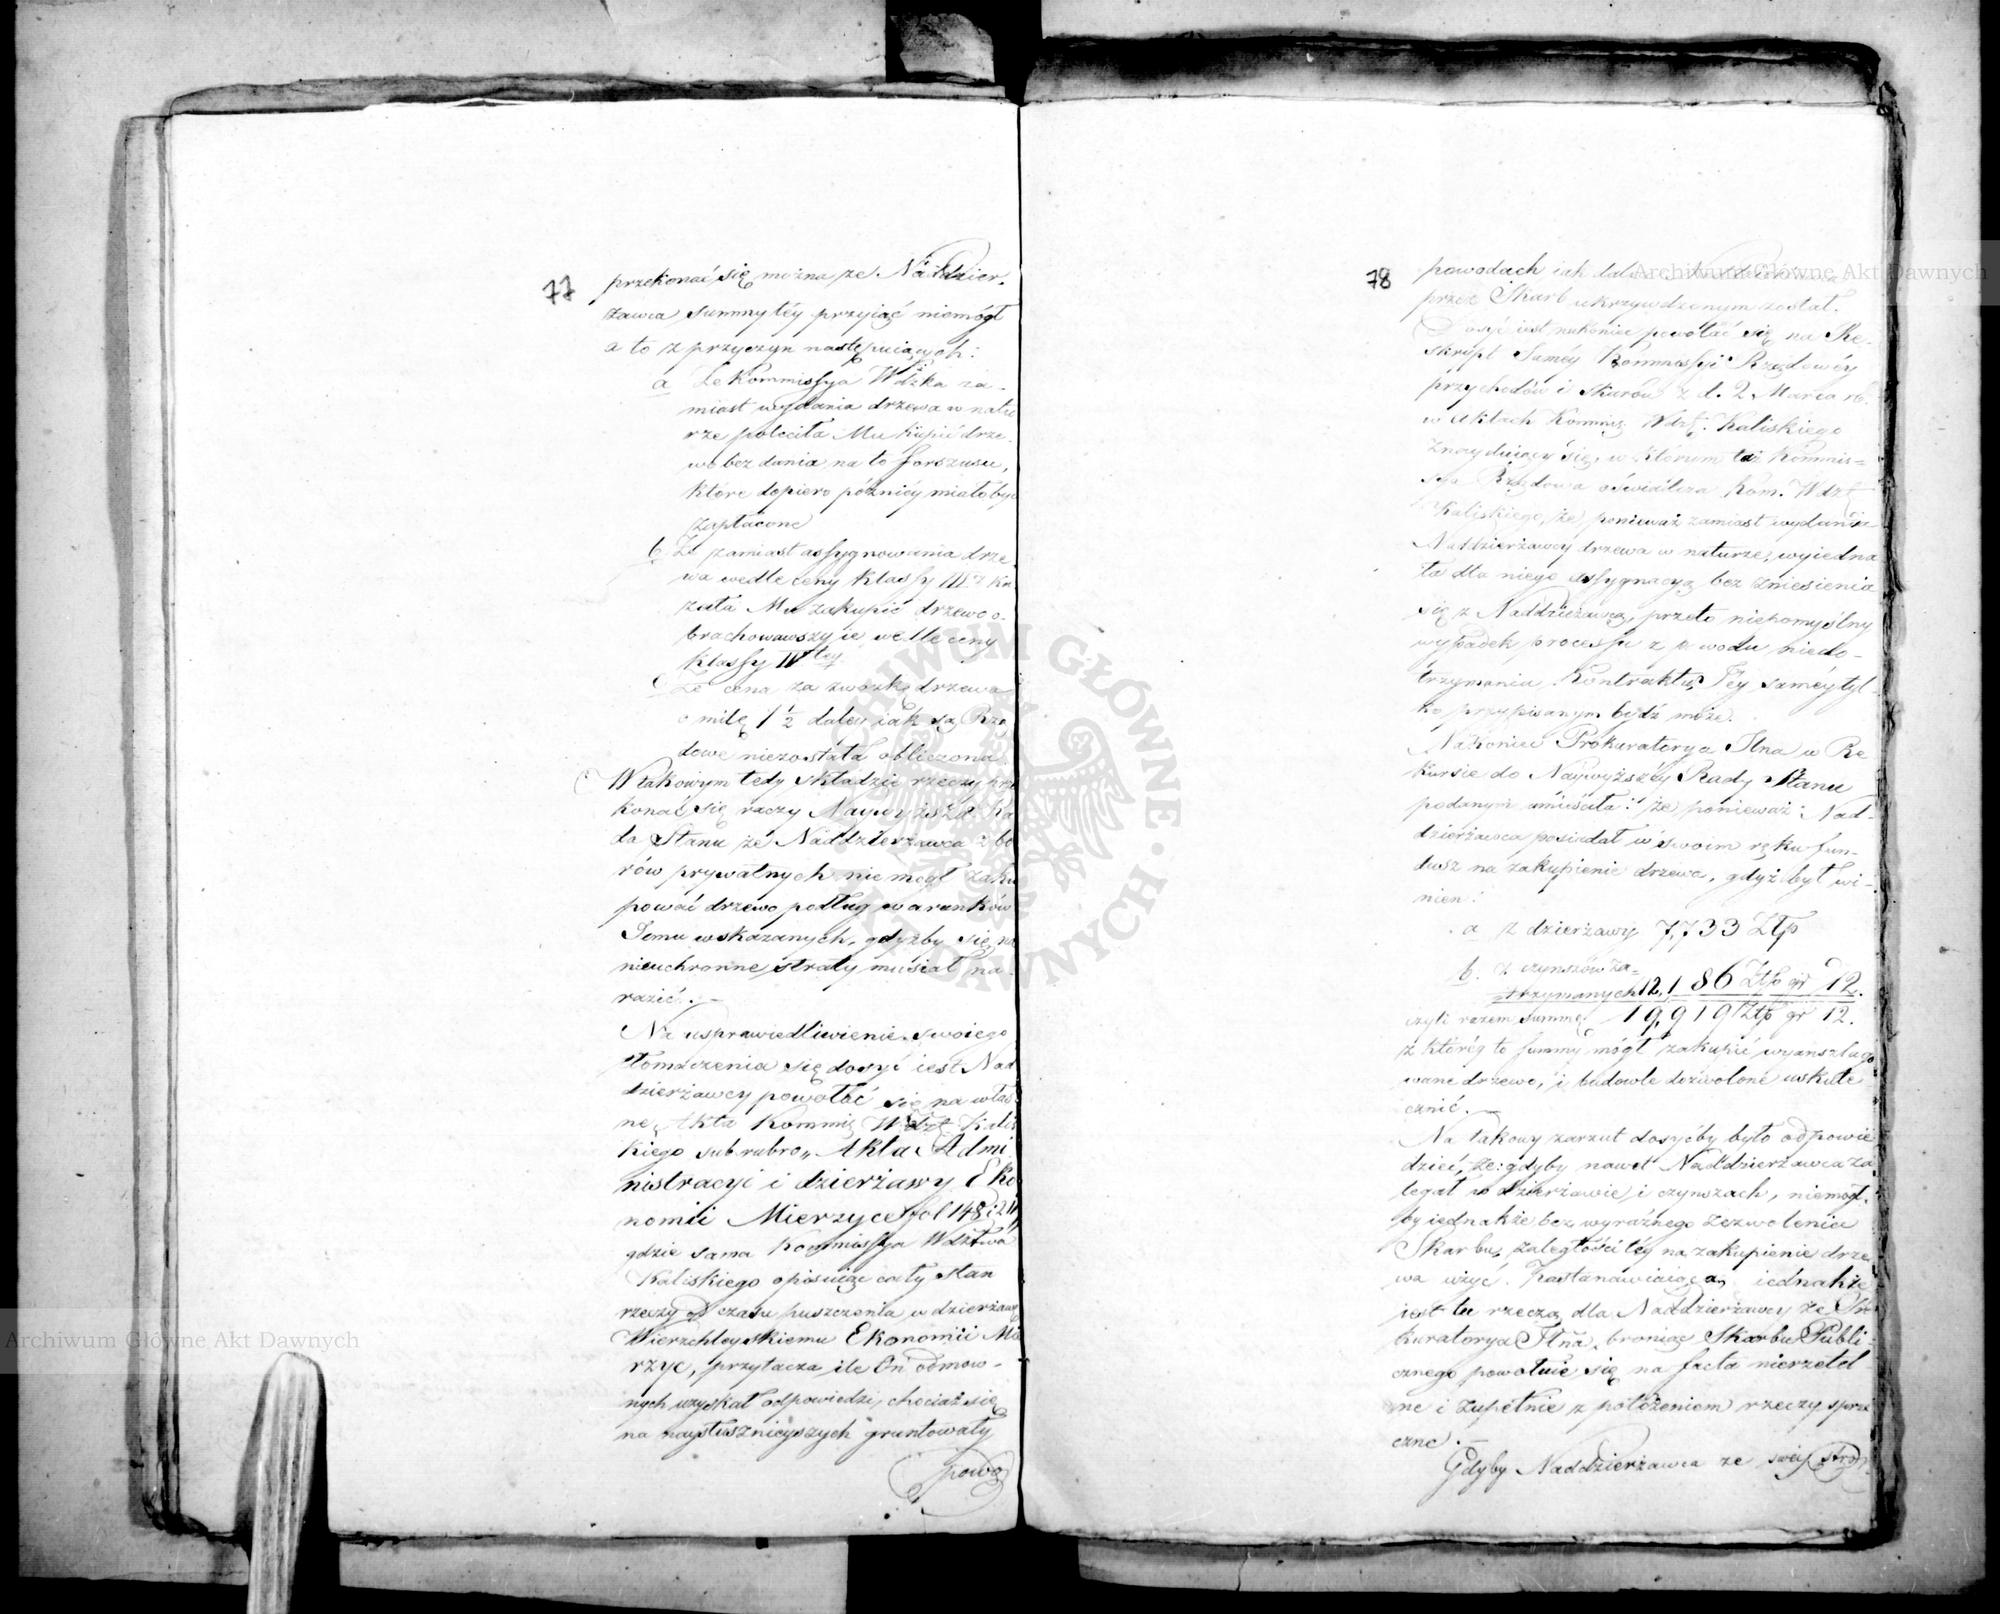 77
przekonać się można że Naddzier-
żawca summy téy przyiąć niemógł
a to z przyczyn następuiących:
a Że Kommissya Wdzka za-
miast wydania drzewa w natu
rze poleciła Mu kupić drze-
wo bez dania na to forszusu,
które dopiero późniéy miało być
zapłacone
b Że zamiast assygnowania drze-
wa wedle ceny klassy III ka
zała Mu zakupić drzewo o-
brachowawszy ie wedle ceny
klassy IV tey
c Że cena za zwózkę drzewa
o milę 1 1/2 daley iak są Rzą
dowe niezostała obliczoną
W takowym tedy składzie rzeczy prze
konać się raczy Naywyższa Ra
da Stanu że Naddzierżawca z bo
rów prywatnych nie mógł zaku
pować drzewo podług warunków
Jemu wskazanych, gdyżby się na
nieuchronne straty musiał na-
razić.
Na usprawiedliwienie swoiego
tłomaczenia się dosyć iest Nad
dzierżawcy powołać się na włas
ne Akta Kommis Wdzt Kalis
kiego sub rubro „Akta Admi
nistracyi i dzierżawy Eko
nomii Mierzyce fol 148 i 211"
gdzie sama Kommissya Wdztwa
Kaliskiego opisuiąc cały stan
rzeczy od czasu puszczenia w dzierżawę
Wierzchleyskiemu Ekonomii Mie
rzyc, przytacza ile On odmow-
nych uzyskał odpowiedzi, chociaż się
na naysłusznieyszych gruntowały
powo
78
powodach iak dalece Naddzierżawca
przez Skarb ukrzywdzonym został.
Dosyć iest nakoniec powołać się na Re-
skrypt Saméy Kommissyi Rządowéy
przychodów i skarbu z d. 2 Marca rb.
w Aktach Kommis. Wdzt. Kaliskiego
znayduiący się, w którym taż Kommis=
sya Rządowa oświadcza Kom. Wdzt
Kaliskiego, że ponieważ zamiast wydania
Naddzierżawcy drzewa w naturze, wyiedna
ła dla niego assygnacyą bez zniesienia
się z Naddzierżawcą, przeto niepomyślny
wypadek processu z powodu niedo-
trzymania Kontraktu, Jey samey tyl-
ko przypisanym bydź może.
Nakoniec Prokuratorya Jlna w Re
kursie do Naywyższéy Rady Stanu
podanym umieściła: że ponieważ Nad-
dzierżawca posiadał w swoim ręku fun-
dusz na zakupienie drzewa, gdyż był wi-
nien:
a z dzierżawy 7,733 Złp
b. z czynszów za=
trzymanych 12,186 Złp gr 12.
czyli razem summę 19,919 Złp gr 12.
z któréy to summy mógł zakupić wyanszlago
wane drzewo, i budowle dozwolone uskute
cznić.
Na takowy zarzut dosyćby było odpowie
dzieć, że: gdyby nawet Naddzierżawca za
legał w dzierżawie i czynszach, niemógł-
by iednakże bez wyraźnego zezwolenia
Skarbu, zaległości téy na zakupienie drze
wa użyć. Zastanawiaiącą iednakże
iest tu rzeczą dla Naddzierżawcy że Pro
kuratorya Jlna, broniąc Skarbu Publi
cznego powołuie się na facta nierzetel
ne i zupełnie z położeniem rzeczy sprze
czne.
Gdyby Naddzierżawca ze swéy stron
Archiwum Główne Akt Dawnych
Archiwum Główne Akt Dawnych
ARCHIWUM GŁÓWNE AKT DAWNYCH